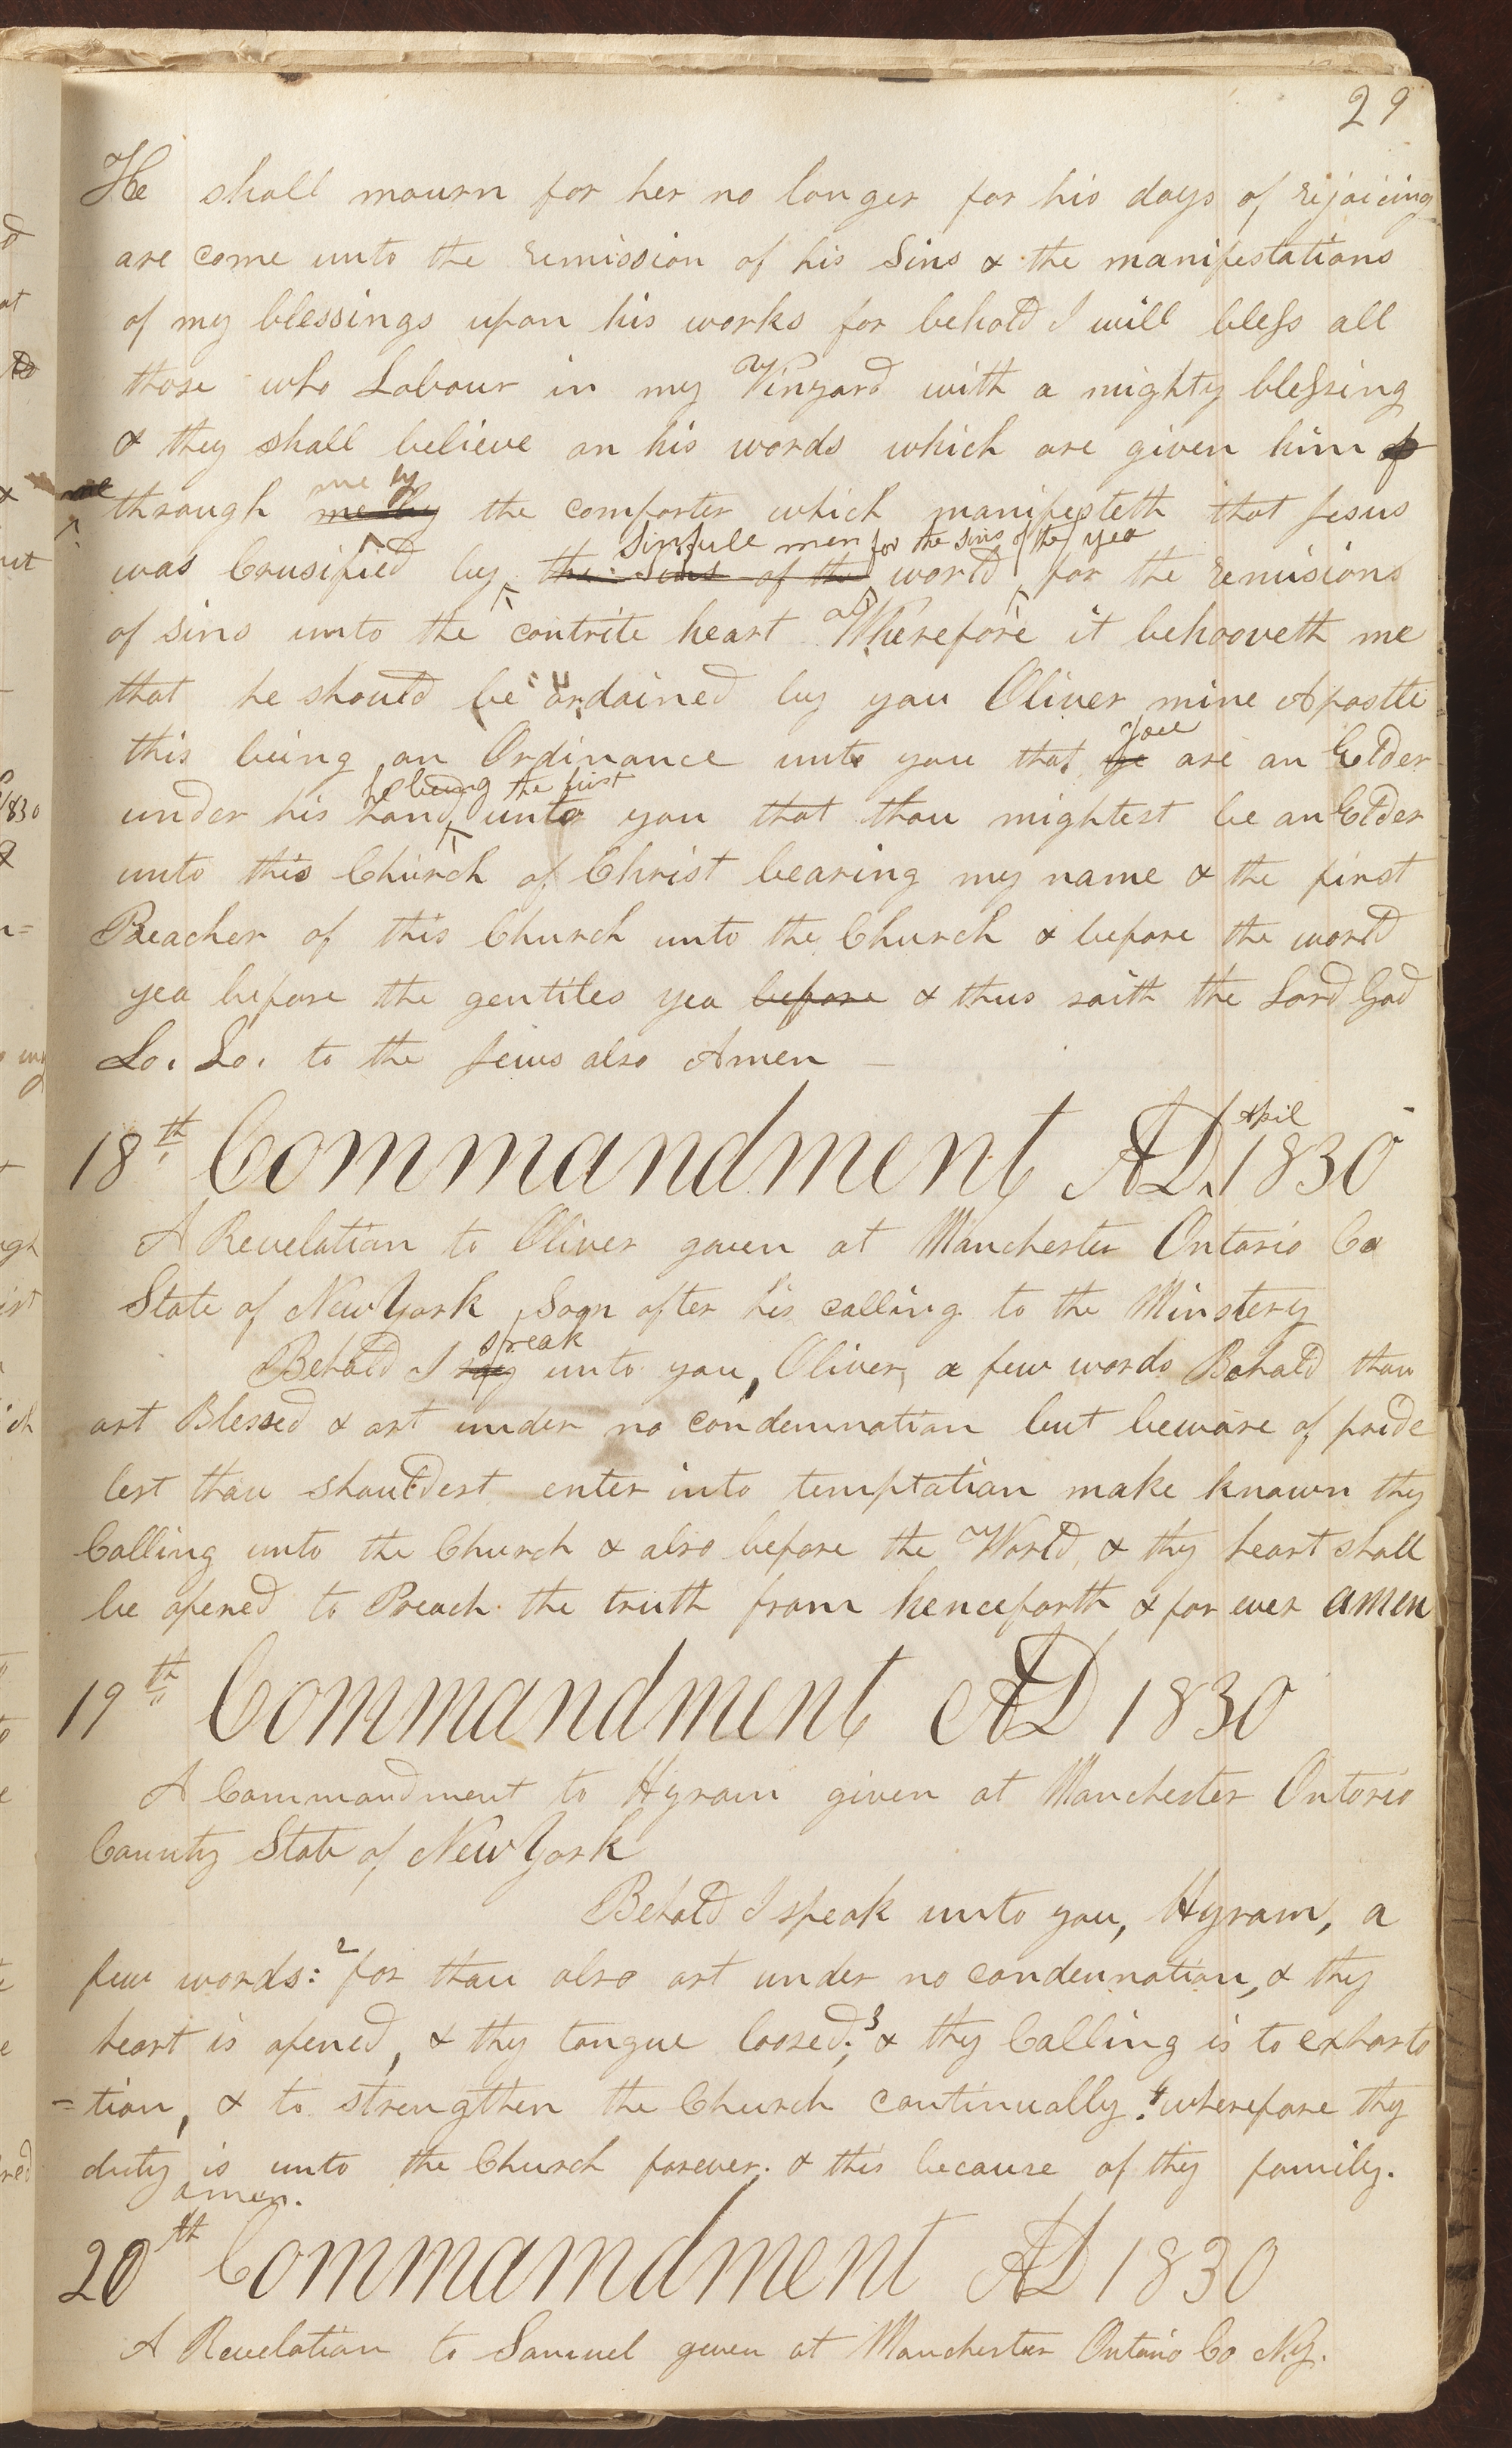 29
He shall mourn for her no longer for his days of rejoicing
are come unto the remission of his Sins & the manifestations
of my blessings upon his works for behold I will bless all
those who Labour in my Vinyard with a mighty blessing
& they shall believe on his words which are given him
me by
through me by the comforter which manifesteth that Jesus
sinfull men for the sins of the yea
was Crusified by the Sins of the world for the remisions
of sins unto the contrite heart Wherefore it behooveth me
that he should be ordained by you Oliver mine Apostle
you
this being an Ordinance unto you that ye are an Elder
he being the first
under his hand unto you that thou mightest be an Elder
unto this Church of Christ bearing my name & the first
Preacher of this Church unto the Church & before the world
yea before the gentiles yea before & thus saith the Lord God
Lo. Lo. to the Jews also Amen —
April
18th Commandment AD. 1830
A Revelation to Oliver given at Manchester Ontario Co
State of New York Soon after his calling to the Minstery
speak
Behold I say unto you, Oliver, a few words Behold thou
art Blessed & art under no condemnation but beware of pride
lest thou shouldest enter into temptation make known thy
Calling unto the Church & also before the World & thy heart shall
be opened to Preach the truth from henceforth & for ever amen
19th Commandment AD 1830
A Commandment to Hyram given at Manchester Ontario
County State of New York
Behold I speak unto you, Hyram, a
few words: 2 for thou also art under no condemnation, & thy
heart is opened, & thy tongue loosed; 3 & thy Calling is to exharta
=tion, & to strengthen the Church continually. 4 wherefore thy
duty is unto the Church forever. & this because of thy family.
amen.
20th Commamdment AD 1830
A Revelation to Samuel given at Manchester Ontario Co NY.